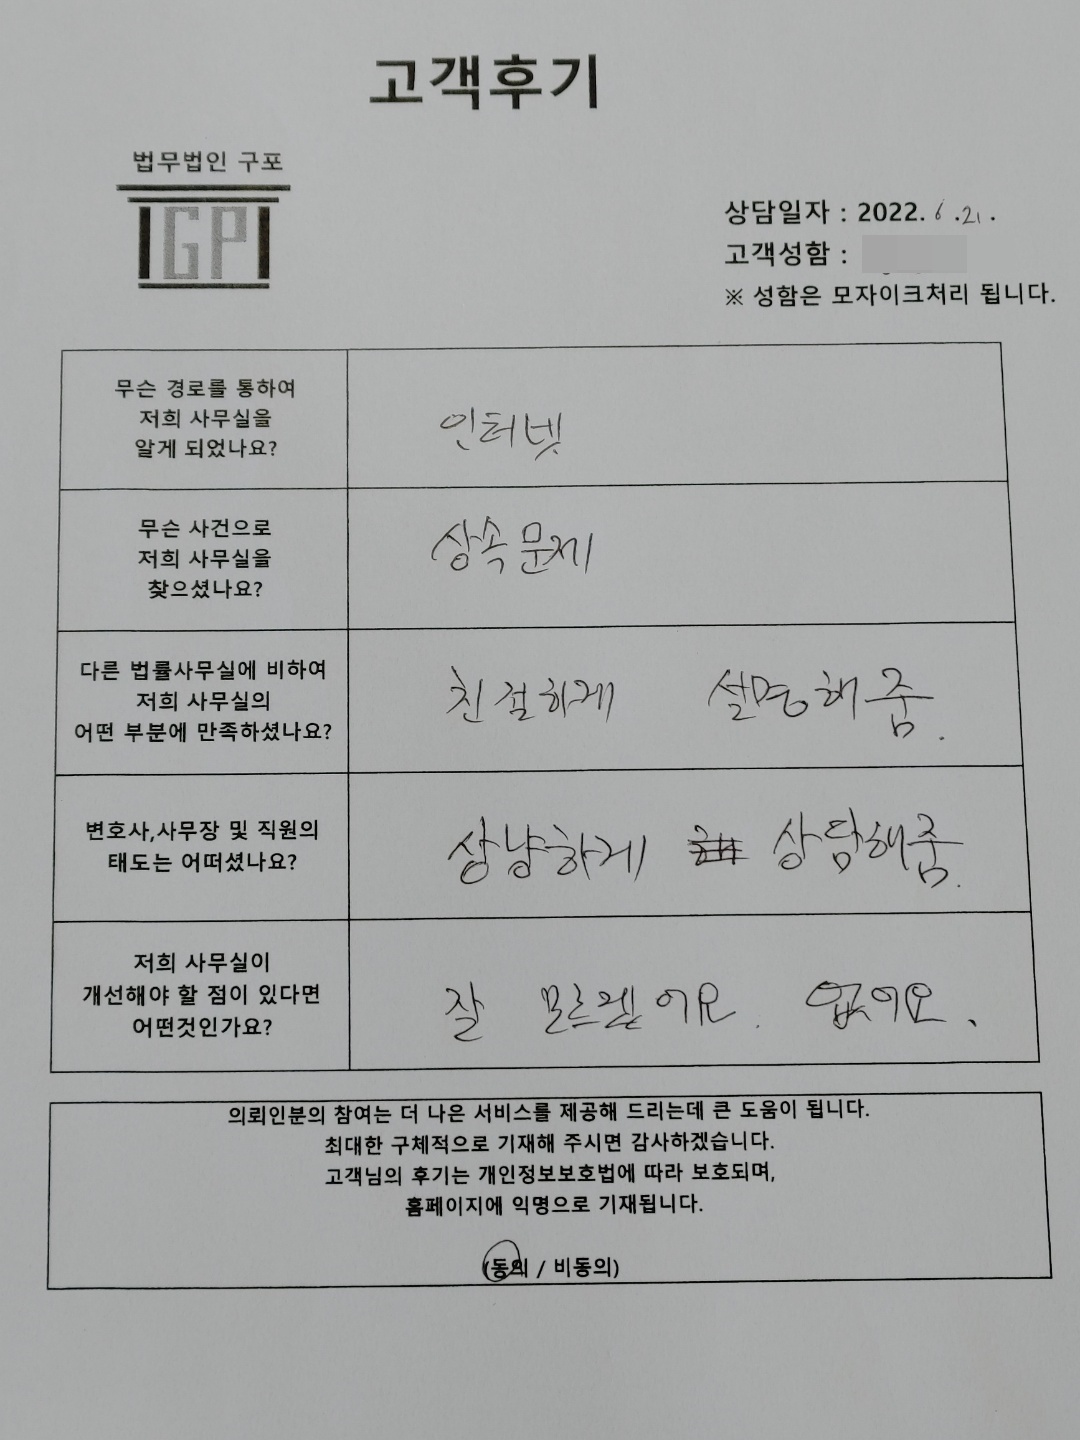 고객후기
법무법인 구포
IGPI
상담일자 : 2022. 6 .21 .
고객성함 :
※ 성함은 모자이크처리 됩니다.
무슨 경로를 통하여
저희 사무실을
알게 되었나요?
인터넷
무슨 사건으로
저희 사무실을
찾으셨나요?
상속문제
다른 법률사무실에 비하여
저희 사무실의
어떤 부분에 만족하셨나요?
친절하게 설명해줌.
변호사,사무장 및 직원의
태도는 어떠셨나요?
상냥하게 상담해줌.
저희 사무실이
개선해야 할 점이 있다면
어떤것인가요?
잘 모르겠어요. 없어요.
의뢰인분의 참여는 더 나은 서비스를 제공해 드리는데 큰 도움이 됩니다.
최대한 구체적으로 기재해 주시면 감사하겠습니다.
고객님의 후기는 개인정보보호법에 따라 보호되며,
홈페이지에 익명으로 기재됩니다.
(동의 / 비동의)